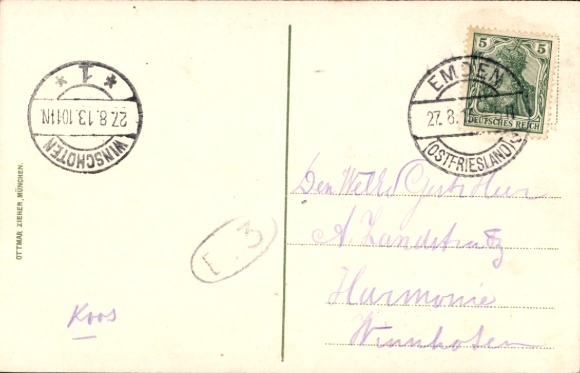 1
27.8.13.1011N
WINSCHOTEN
OTTMAR ZIEHER, MÜNCHEN.
Koos
E.3
5 5
DEUTSCHES REICH
EMDEN
27.8.
(OSTFRIESLAND)
Den
A.
Harmonie
Winschoten